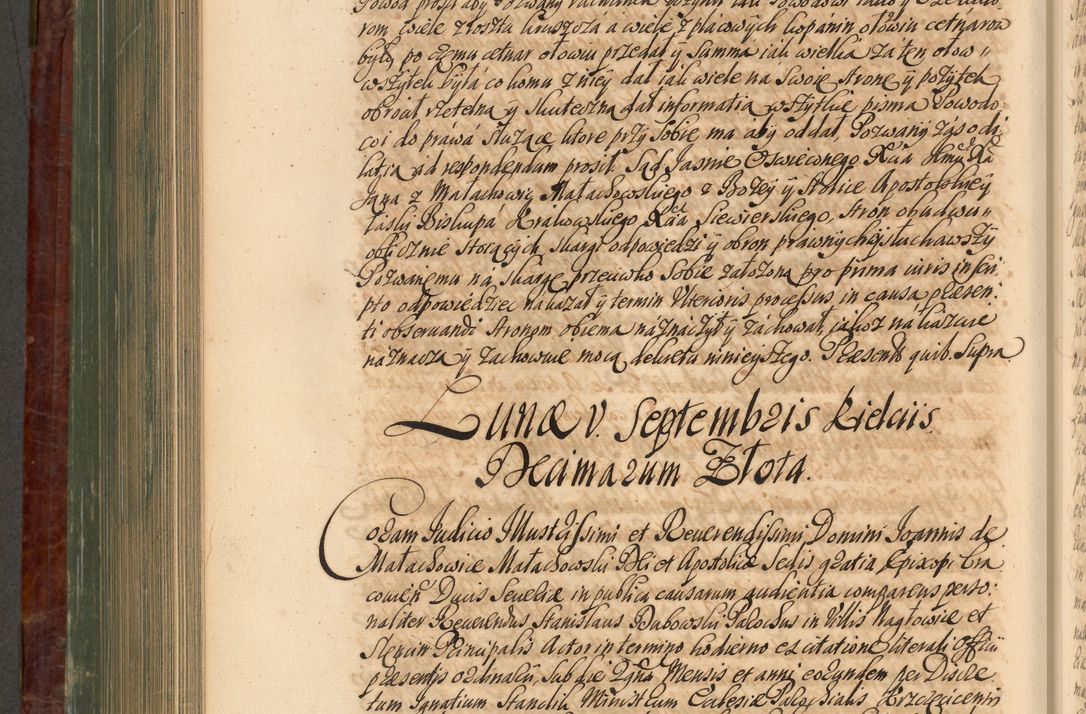 rom wiele z rosztu kruszcza a wiele z płacowych kopanin ołowiu cetnarow
było, po czemu cetnar ołowiu przedał y summa iak wielka za ten ołow
wszytek była co komu z niey dał iak wiele na swoie strone y pożytek
obrocił rzetelną y skuteczną dał informatią wszytkie pisma Powodo:
wi do prawa służące ktore przy sobie ma aby oddał, Pozwany zás o di
latią ad respondendum prosił. Sąd Jasnie Oswieconego Xcia Jmci Xa
Jana z Małachowic Małachowskiego z Bożey y Stolice Apostolskiey
łaski Biskupa Krakowskiego Xcia Siewierskiego, stron obudwu
oblicznie stoiących, skargi odpowiedzi y obron prawnych wysłuchawszy
Pozwanemu ná skargę przeciwko sobie załozoną pro prima iuris inscri
pto odpowiedziec nakazał y termin ulterioris processus in causa præsen:
ti observandi stronom obiema náznaczył y záchował, iakoż nakazuie
náznacza y záchowuie mocą dekretu ninieyszego. Præsent: quib. supra
Lunæ v. Septembris Kielciis
Decimarum Złota.
Coram Judicio Illustrissimi et Reverendissimi Domini Joannis de
Małachowice Małachowski Dei et Apostolicæ Sedis gratia Episcopi Cra
covien: Ducis Severiæ in publica causarum audientia comparens perso:
naliter Reverendus Stanislaus Bąbowski Parochus in Villis Nagłowice et
Slęcin Principalis Actor in termino hodierno ex citatione literali Officii
præsentis ordinarii, sub die 2da Mensis et anni eorundem per Discre
tum Ignatium Stanclik Ministrum Ecclesiæ Parochialis Krzcięcicensis